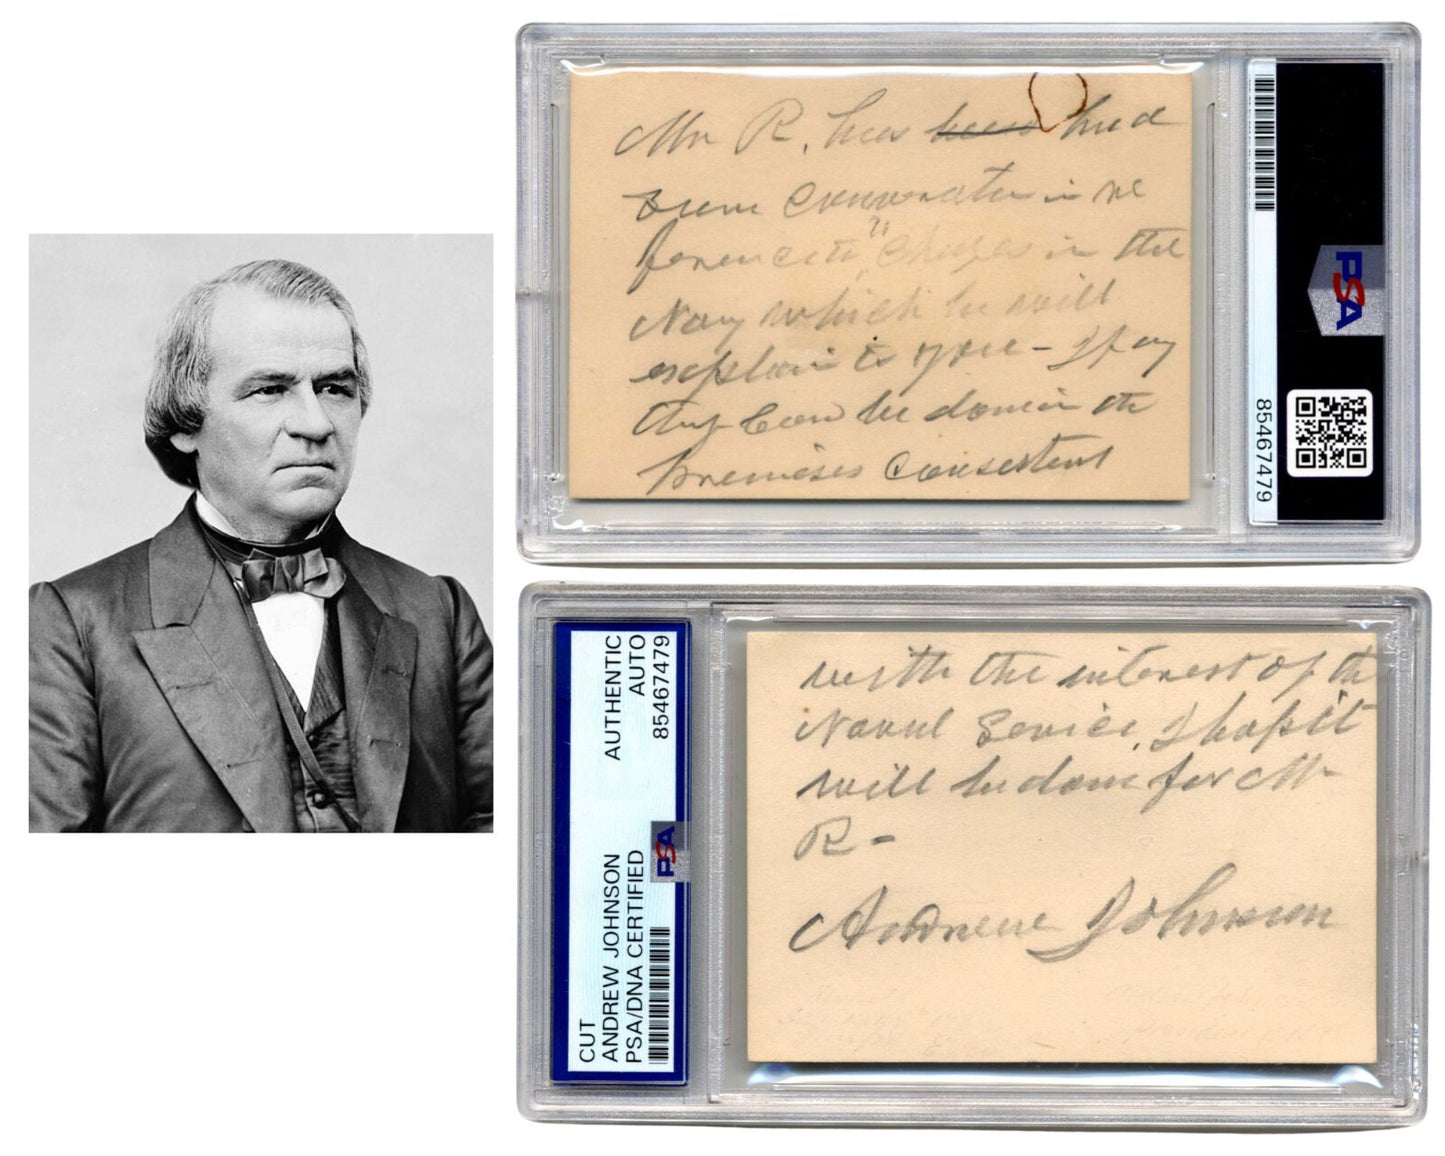 Mr R. has been had
some conversation in re
ference to "Charges in the
Navy which he will
explain to you - If any
thing can be done in the
premises consistent
PSA
85467479
with the interest of the
Naval Service, I hope it
will be done for Mr
R -
Andrew Johnson
CUT
ANDREW JOHNSON
PSA/DNA CERTIFIED
AUTHENTIC
AUTO
85467479
PSA